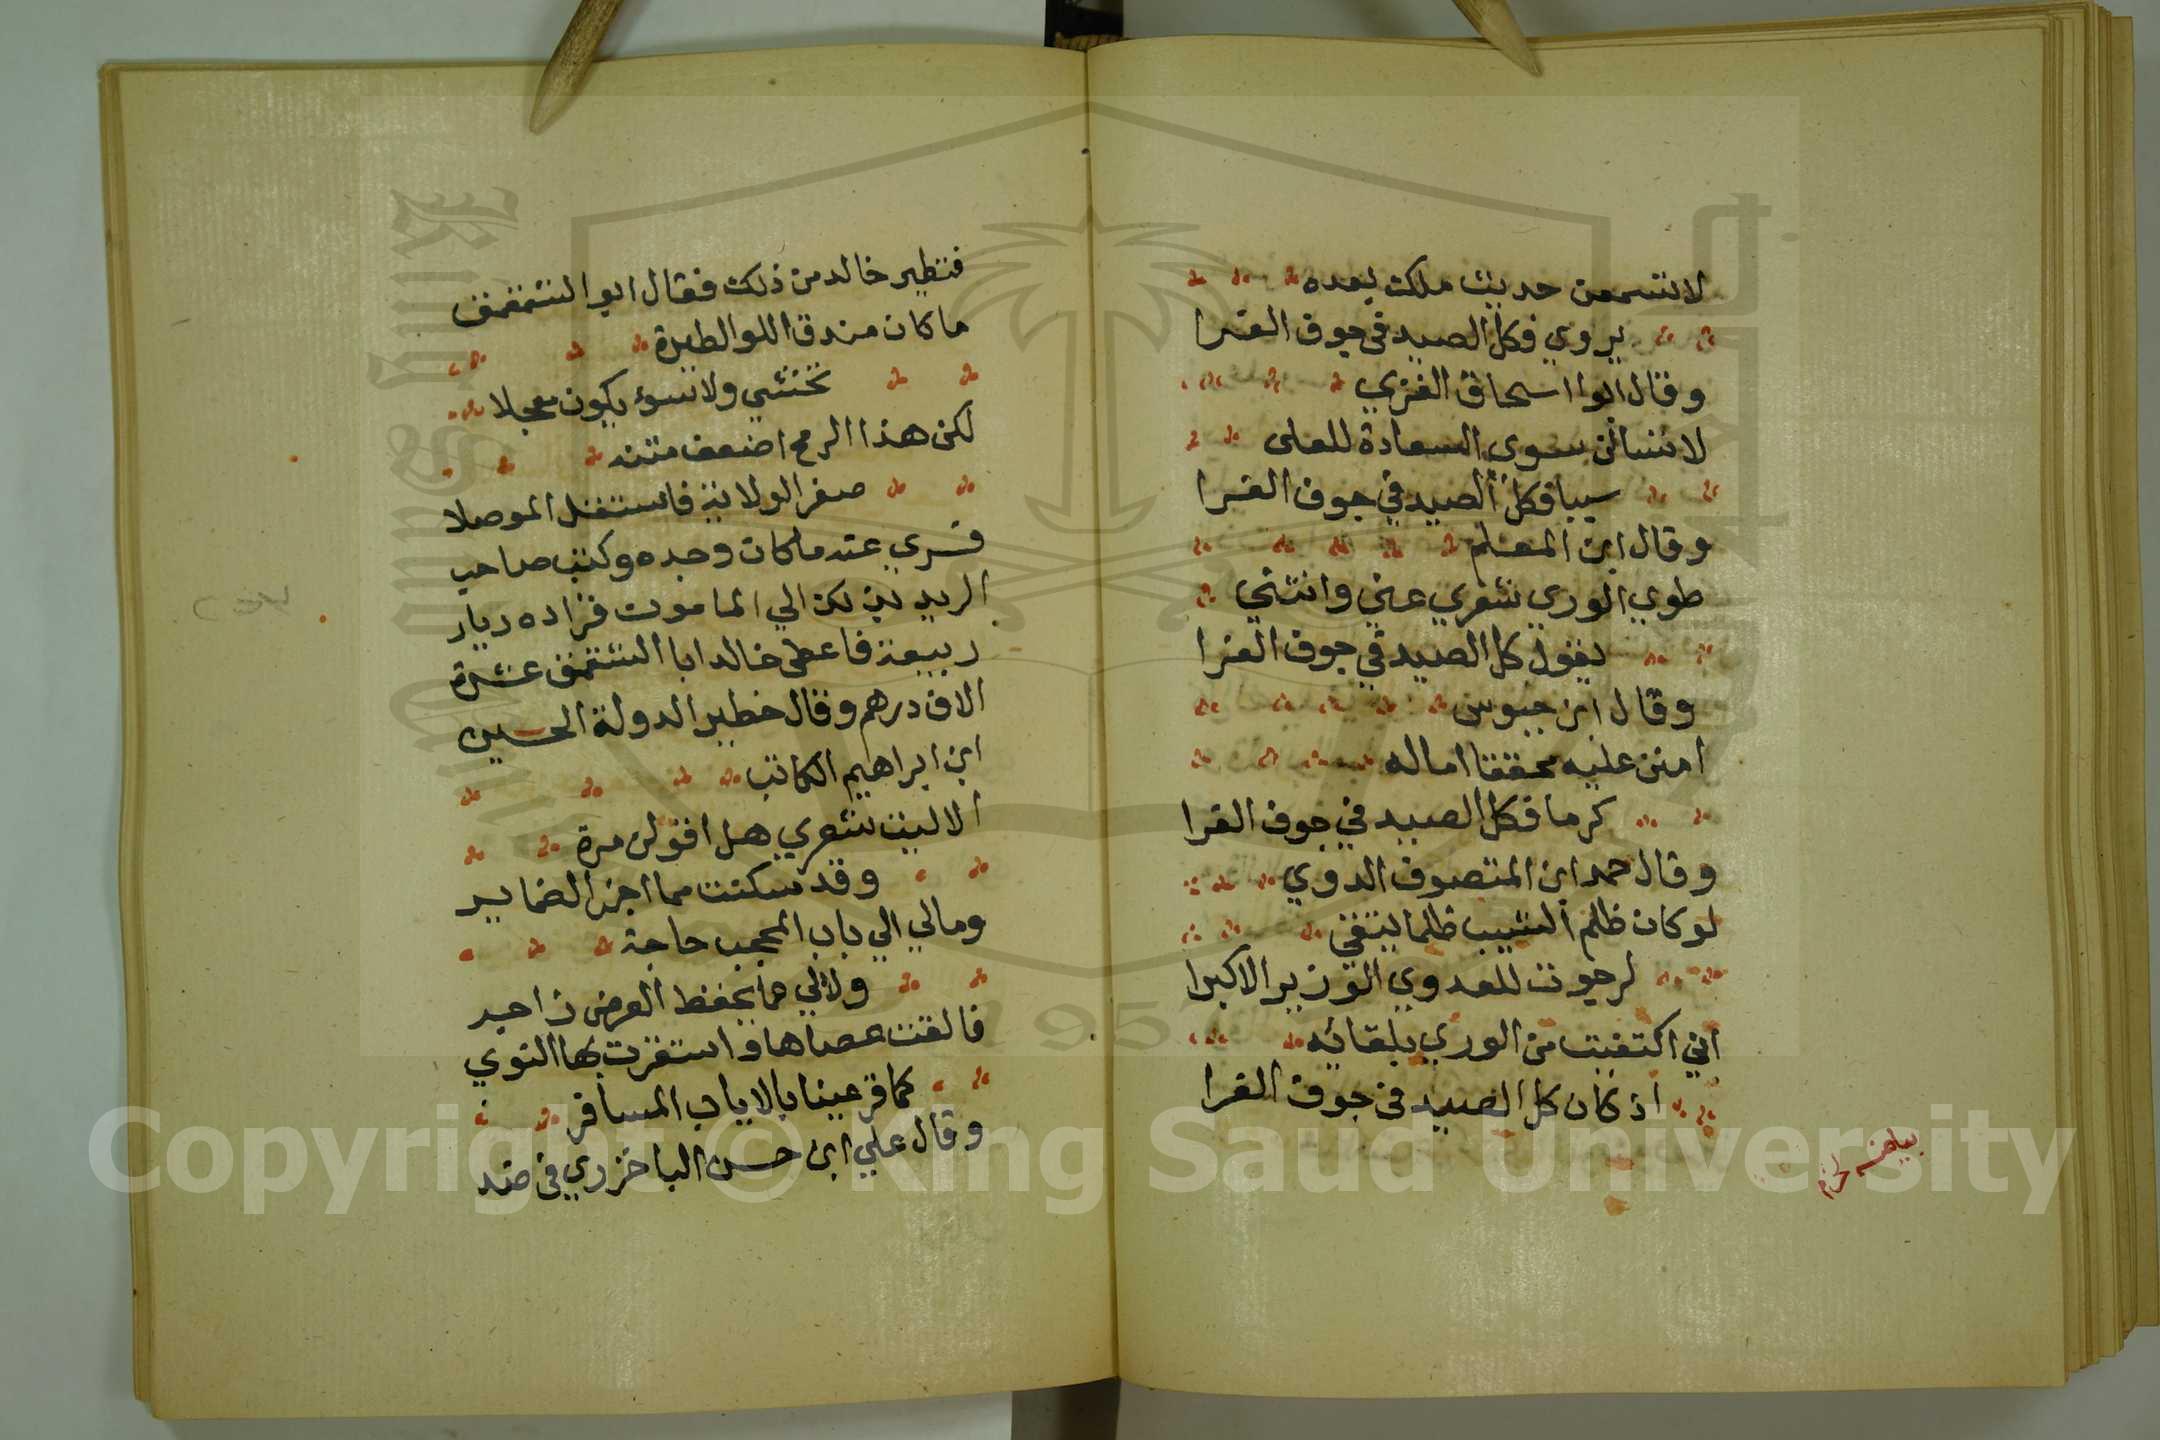 لا تسمعن حديث ملك بعده
يروي فكل الصيد في جوف الفرا
وقال ابوا اسحاق الغزي
لا تسالن سوي السعادة للعلى
سببا فكل الصيد في جوف الفرا
وقال ابن المعلم
طوي الوري شعري عني وانثني
يقول كل الصيد في جوف الفرا
وقال ابن حيوس
امنن عليه محققا اماله
كرما فكل الصيد في جوف الفرا
وقال حمد ابن المنصوف الدوي
لو كان ظلم الشيب ظلما ينقي
لرجوت للعدوي الوزير الاكبرا
اني اكتفيت من الوري بلقائه
اذ كان كل الصيد في جوف الفرا
بياض
فتطير خالد من ذلك فقال ابو الشمقمق
ما كان مندق اللوا لطيرة
تخشي ولا سوء يكون معجلا
لكن هذا الرمح اضعف متنه
صغر الولاية فاستقل الموصلا
فسري عنه ما كان وجده وكتب صاحب
البريد بذلك الي المامون فزاده ديار
ربيعة فاعطى خالد ابا الشمقمق عشرة
الاف درهم وقال خطير الدولة الحسين
ابن ابراهيم الكاتب
الا ليت شعري هل اقولن مرة
وقد سكنت مما اجن الضماير
ومالي الي باب المحجب حاجة
ولا لي مما يحفظ العرض زاجر
فالقت عصاها واستقرت بها النوي
كما قر عينا بالاياب المسافر
وقال علي ابن حسن الباخزري في ضد
Copyright © King Saud University
King Saud University
1957